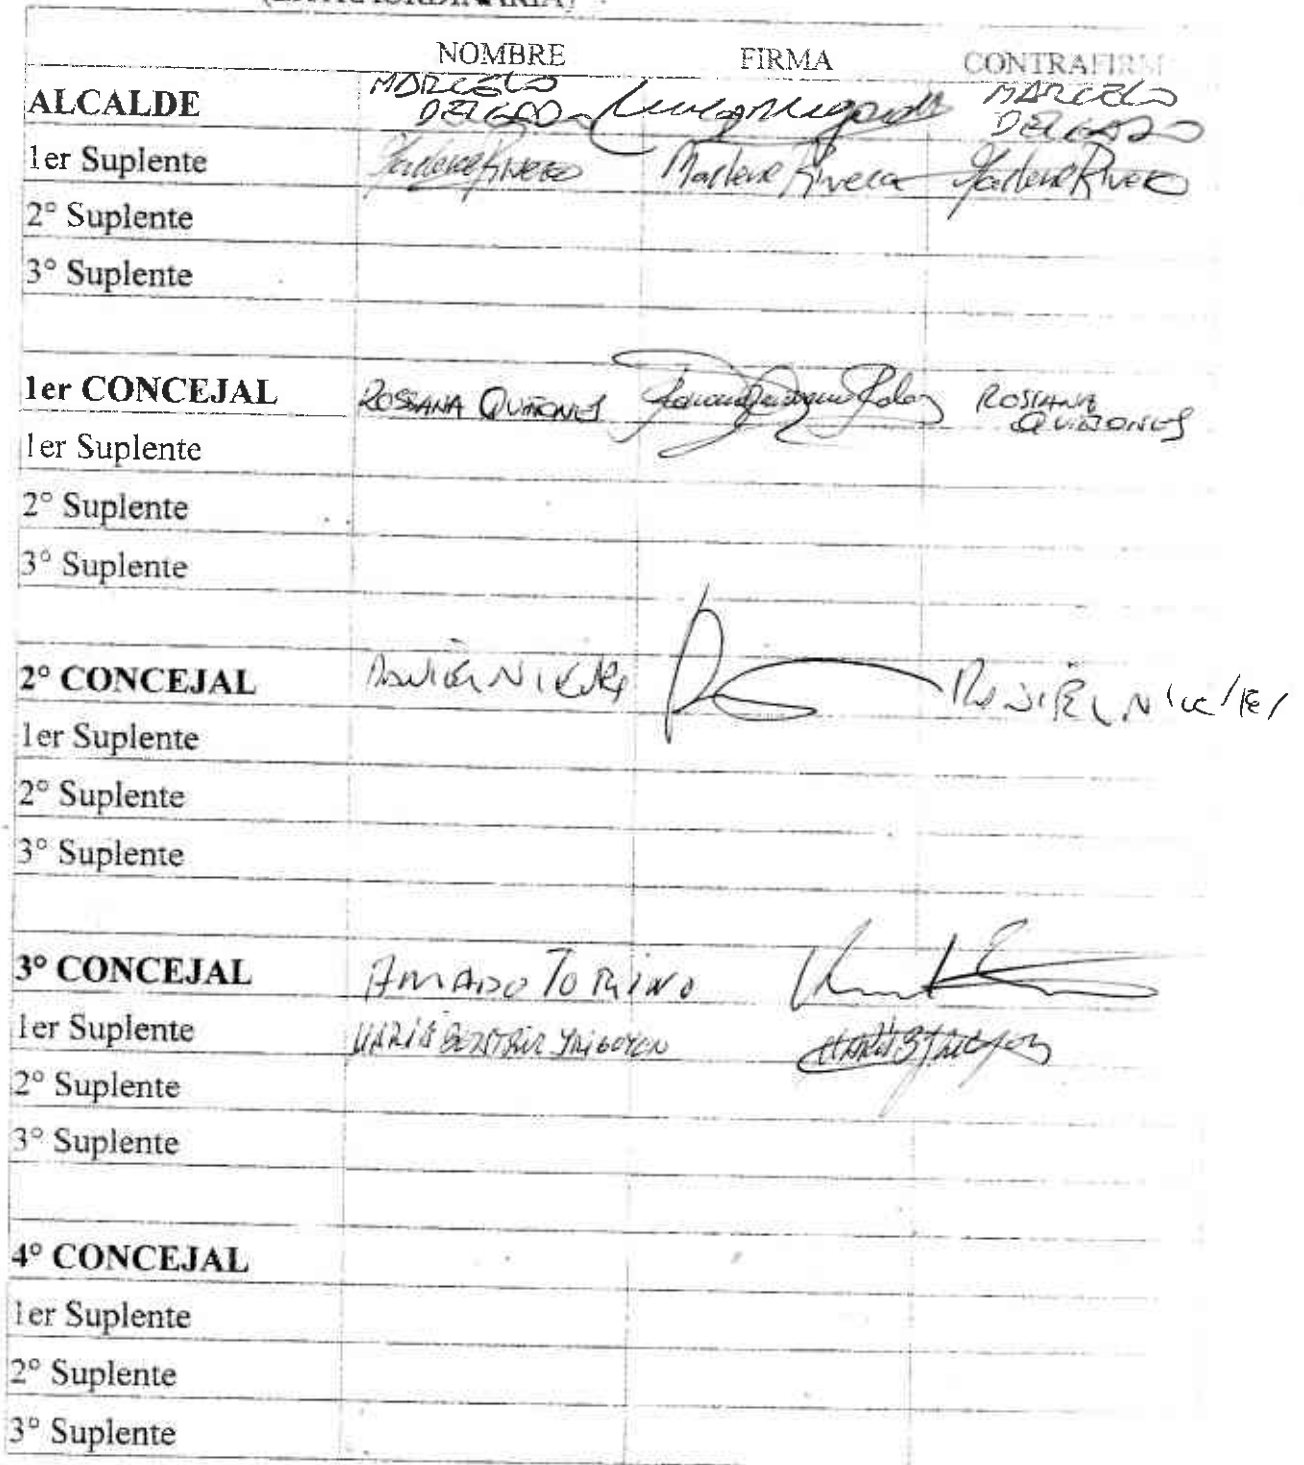 NOMBRE FIRMA CONTRAFIRM
ALCALDE MARCELO DELGADO MARCELO DELGADO
1er Suplente Marlene Rivero Marlene Rivera Marlene Rivero
2° Suplente
3° Suplente
1er CONCEJAL ROSSANA QUIÑONES ROSSANA QUIÑONES
1er Suplente
2° Suplente
3° Suplente
2° CONCEJAL
1er Suplente
2° Suplente
3° Suplente
3° CONCEJAL AMADO TORINO
1er Suplente MARIA BEATRIZ YRIGOYEN
2° Suplente
3° Suplente
4° CONCEJAL
1er Suplente
2° Suplente
3° Suplente